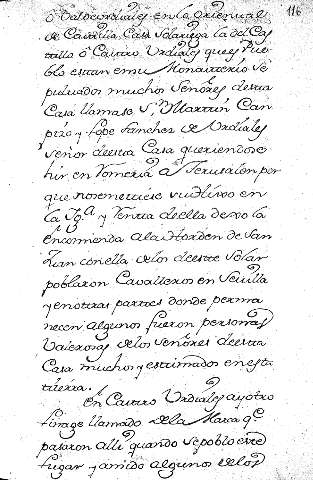 116
ô Valdecordiales en lo oriental
de Cavallia, Casa Solariega la del Cas
trillo ô Castro Urdiales que es Pue
blo estan en un Monasterio Se
pultados muchos Señores de esta
Casa llamase Sn Martin Cam
pizo y Lope Sanchez de Urdiales
Señor de esta Casa queriendose
hir en Romeria â Jerusalen por
que no se metiese su disivo en
la Yga. y Tenia de ella dexo la
encomienda a la Horden de San
Juan con ella de los de este Solar
poblaron Cavalleros en Sevilla
y en otras partes donde perma
necen algunos fueron personas
Valerosas de los Señores de esta
Casa muchos y estimados en esta
tierra.
En Castro Urdiales ay otro
linage llamado de la Marca qe.
pasaron alli quando se poblo este
lugar y an sido algunos de los